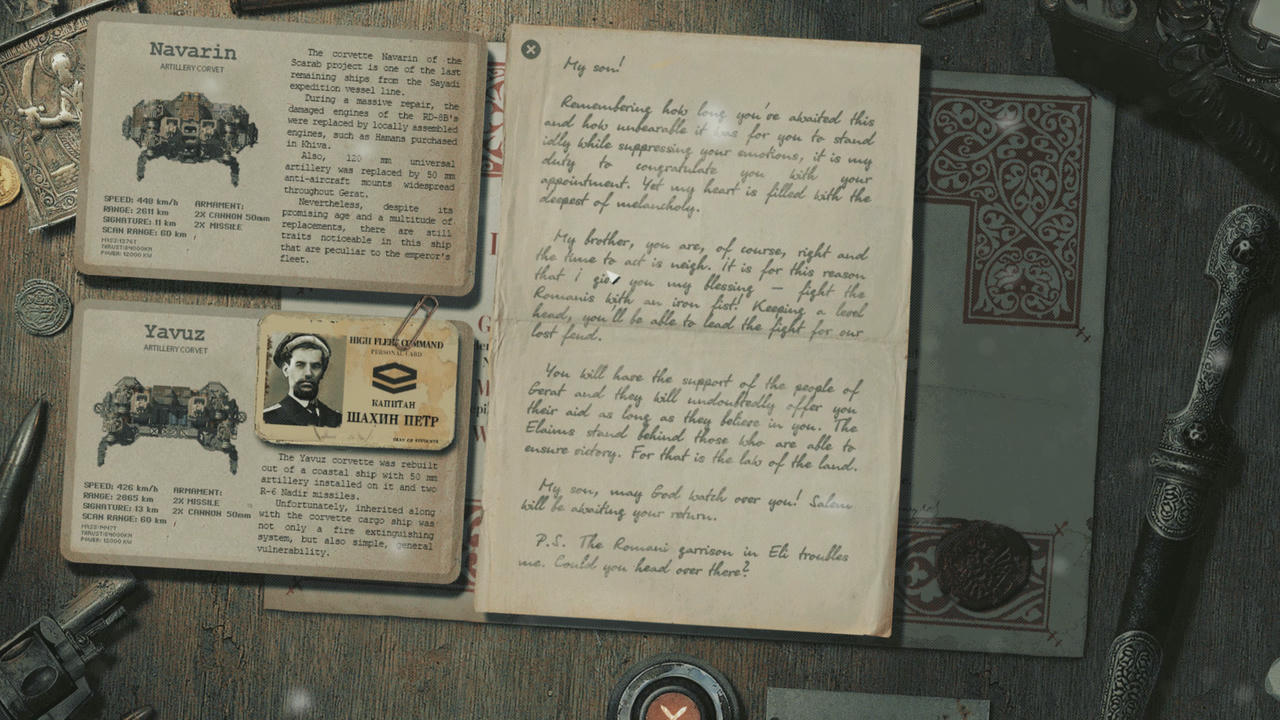 Navarin
ARTILLERY CORVET
SPEED: 448 km/h
RANGE: 2611 km
SIGNATURE: 11 km
SCAN RANGE: 60 km
ARMAMENT:
2X CANNON 50mm
2X MISSILE
POWER: 12000 KW
The corvette Navarin of the
Scarab project is one of the last
remaining ships from the Sayadi
expedition vessel line.
During a massive repair, the
damaged engines of the RD-8B's
were replaced by locally assembled
engines, such as Hamans purchased
in Khiva.
Also, 120 mm universal
artillery was replaced by 50 mm
anti-aircraft mounts widespread
throughout Gerat.
Nevertheless, despite its
promising age and a multitude of
replacements, there are still
traits noticeable in this ship
that are peculiar to the emperor's
fleet.
Yavuz
ARTILLERY CORVET
SPEED: 426 km/h
RANGE: 2865 km
SIGNATURE: 13 km
SCAN RANGE: 60 km
ARMAMENT:
2X MISSILE
2X CANNON 50mm
POWER: 12000 KW
HIGH FLEET COMMAND
PERSONAL CARD
КАПИТАН
ШАХИН ПЕТР
The Yavuz corvette was rebuilt
out of a coastal ship with 50 mm
artillery installed on it and two
R-6 Nadir missiles.
Unfortunately, inherited along
with the corvette cargo ship was
not only a fire extinguishing
system, but also simple, general
vulnerability.
My son!
Remembering how long you've awaited this
and how unbearable it was for you to stand
idly while suppressing your emotions, it is my
duty to congratulate you with your
appointment. Yet my heart is filled with the
deepest of melancholy.
My brother, you are, of course, right and
the time to act is neigh. It is for this reason
that I give you my blessing — fight the
Romanis with an iron fist! Keeping a level
head, you'll be able to lead the fight for our
lost feud.
You will have the support of the people of
Gerat and they will undoubtedly offer you
their aid as long as they believe in you. The
Elaims stand behind those who are able to
ensure victory. For that is the law of the land.
My son, may God watch over you! Salem
will be awaiting your return.
P.S. The Romani garrison in Eli troubles
me. Could you head over there?